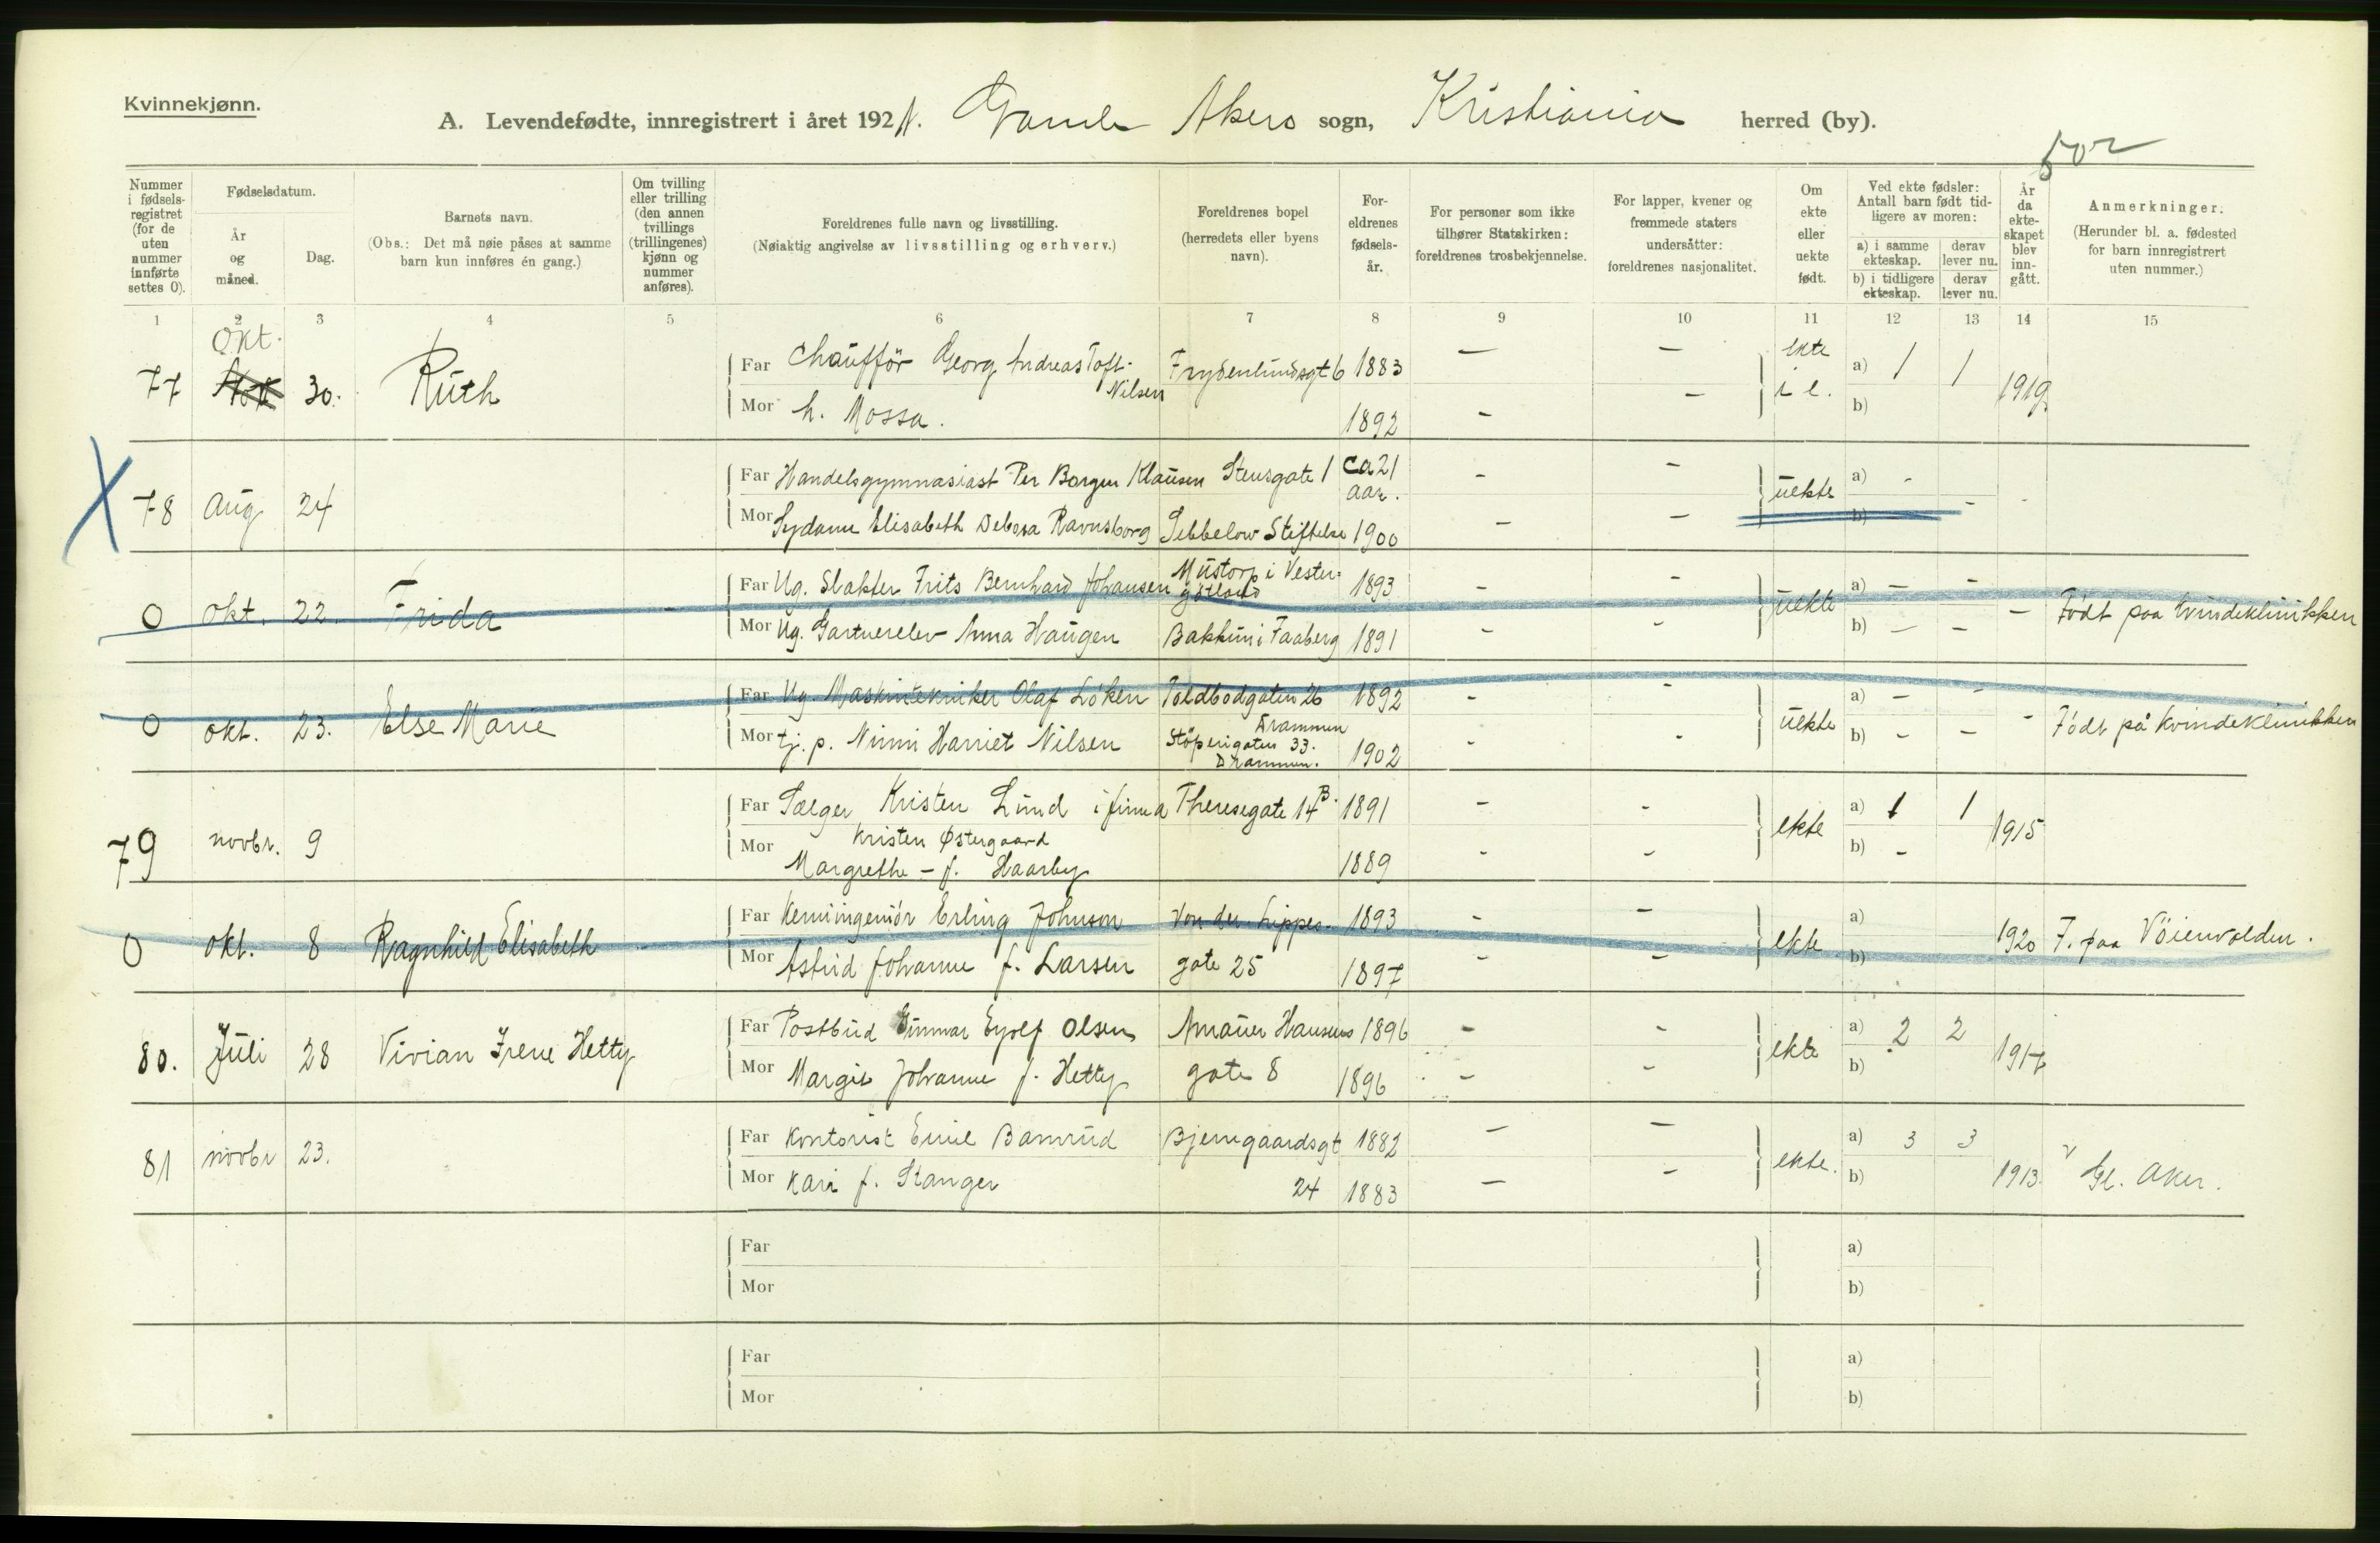 Kvinnekjønn.
A. Levendefødte, innregistrert i året 1921. Gamle Akers sogn, Kristiania herred (by).
502
Nummer i fødselsregistret (for de uten nummer innførte settes 0).
Fødselsdatum.
År og måned.
Dag.
Barnets navn.
(Obs.: Det må nøie påses at samme barn kun innføres én gang.)
Om tvilling eller trilling (den annen tvillings (trillingenes) kjønn og nummer anføres).
Foreldrenes fulle navn og livsstilling.
(Nøiaktig angivelse av livsstilling og erhverv.)
Foreldrenes bopel (herredets eller byens navn).
Foreldrenes fødselsår.
For personer som ikke tilhører Statskirken: foreldrenes trosbekjennelse.
For lapper, kvener og fremmede staters undersåtter: foreldrenes nasjonalitet.
Om ekte eller uekte født.
Ved ekte fødsler: Antall barn født tidligere av moren:
a) i samme ekteskap. derav lever nu.
b) i tidligere ekteskap. derav lever nu.
År da ekteskapet blev inngått.
Anmerkninger.
(Herunder bl. a. fødested for barn innregistrert uten nummer.)
1 2 3 4 5 6 7 8 9 10 11 12 13 14 15
77 Okt. 30. Ruth
Far Chauffør Georg Andreas Toft-Nilsen Frydenlundsgt 6 1883 – – ekte a) 1 1
Mor h. Mossa. 1892 – – i e. b) 1919
X 78 Aug 24
Far Handelsgymnasiast Per Borgen Klausen Stensgate 1 ca 21 aar. – – uekte a) -
Mor Elisabeth Ravnsborg Sebbelow Stiftelse 1900 – – b) –
0 Okt. 22. Frida -
Far Ug. Slakter Frits Bernhard Johansen Mustorp i Vestergötland 1893 – – uekte a) – –
Mor Ug. Gartnerelev Anna Haugen Bakkun i Faaberg 1891 – – b) – – – Født paa kvindeklinikken
0 okt. 23. Else Marie
Far Ug. Maskintekniker Olaf Løken Toldbodgaten 26 Drammen 1892 - - uekte a) – -
Mor tj. p. Nimi Harriet Nilsen Støperigaten 33. Drammen. 1902 - - b) – – - Født på kvindeklinikken
79 novbr. 9
Far Sælger Kristen Lund i firma Kristen Østergaard Theresegate 14 B. 1891 – - ekte a) 1 1
Mor Margrethe – f. Haarby 1889 - – b) – 1915
0 okt. 8 Ragnhild Elisabeth
Far Kemiingeniør Erling Johnson Von der Lippes gate 25 1893 - – ekte a)
Mor Astrid Johanne f. Larsen 1897 - – b) 1920 F. paa Vøienvolden.
80. Juli 28 Vivian Irene Hetty
Far Postbud Gunnar Eyolf Olsen Amauer Hansens gate 8 1896 - - ekte a) 2 2
Mor Margit Johanne f. Hetty 1896 – - b) 1917
81 novbr 23.
Far Kontorist Emil Bamrud Bjerregaardsgt 24 1882 – – ekte. a) 3 3
Mor Kari f. Stanger 1883 – – b) 1913. v Gl. Aker.
Far a)
Mor b)
Far a)
Mor b)